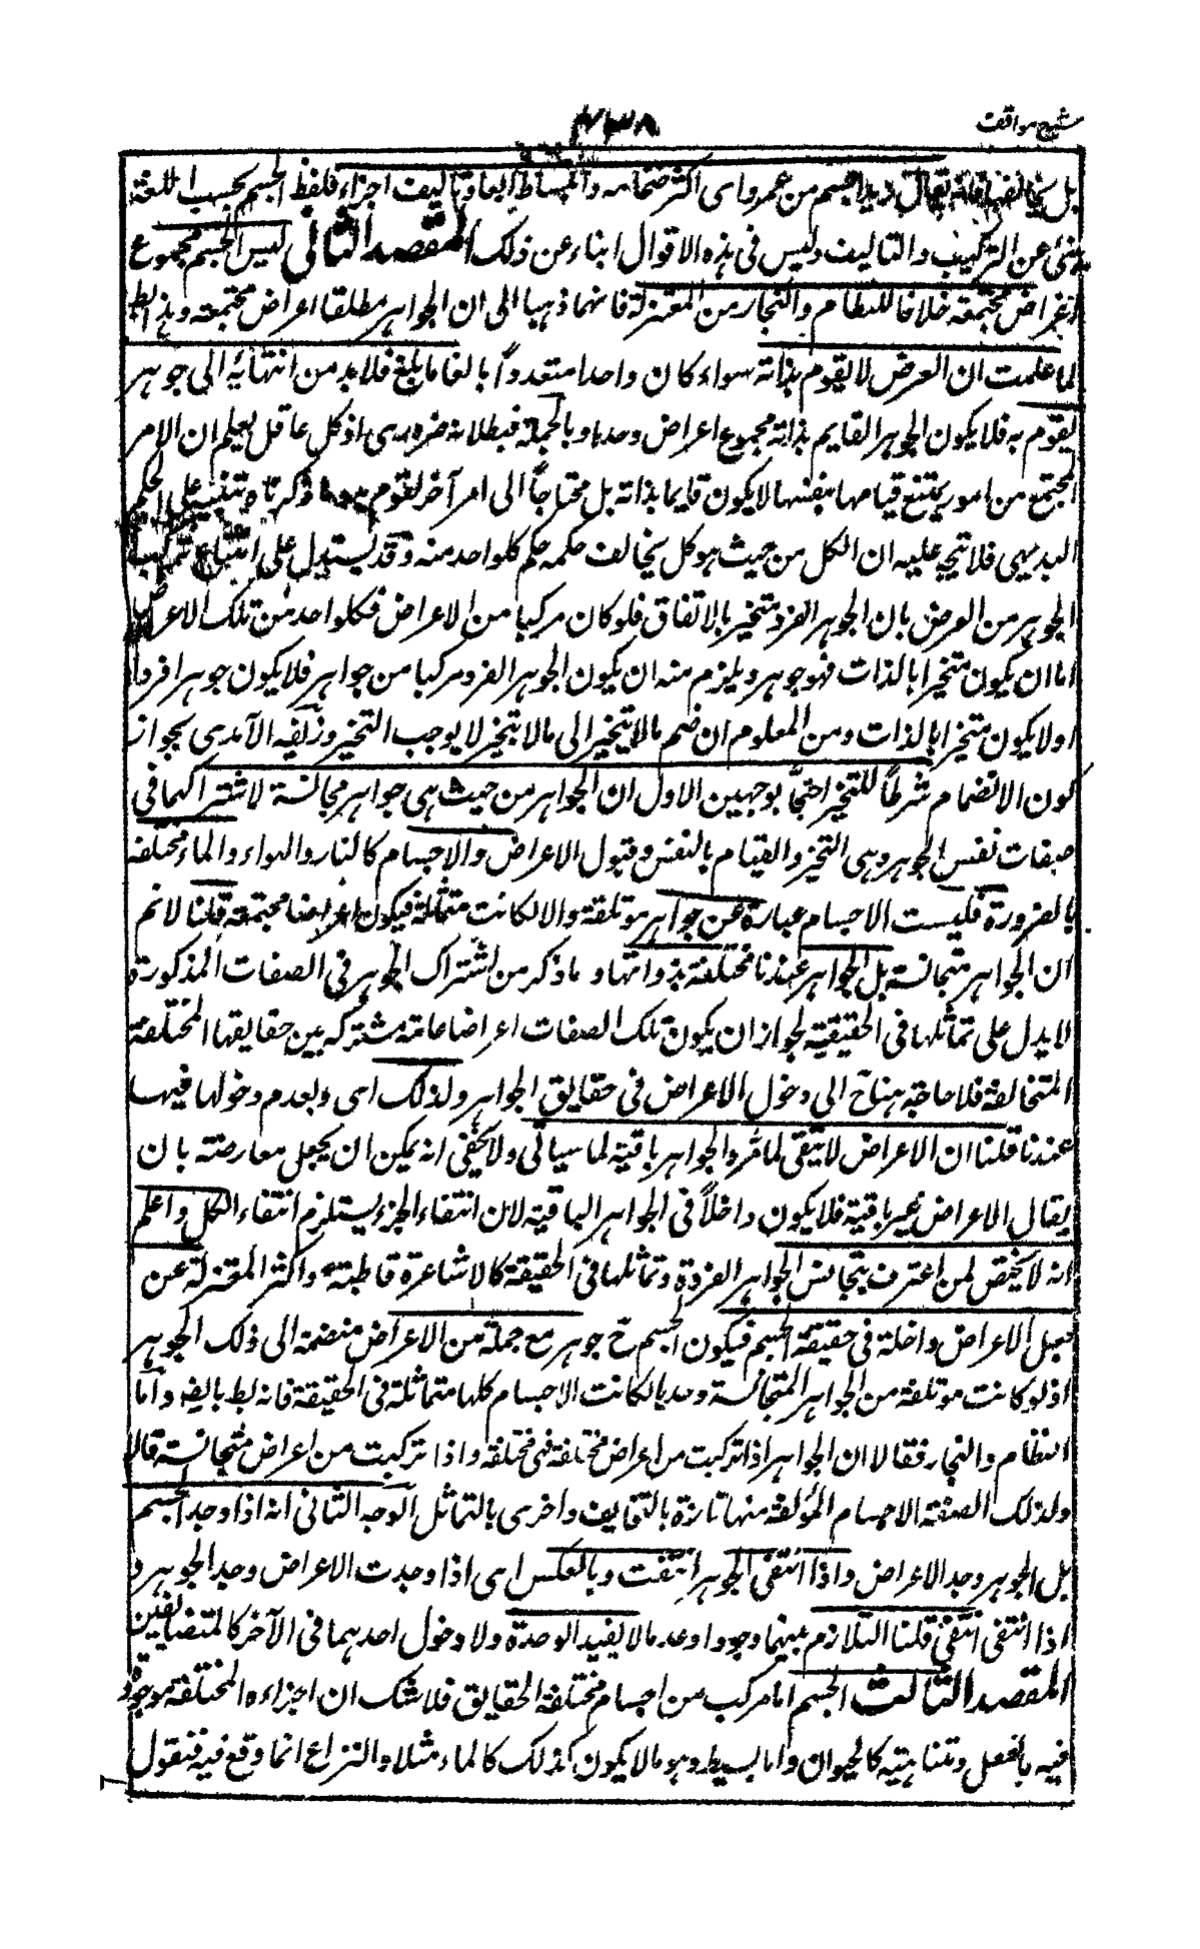 شرح مواقف
۴۳۸
بل يخالفها فانه يقال زيد اجسم من عمرو اى اكثر ضخامة وانبساط ابعاد وتاليف اجزاء فلفظ الجسم بحسب اللغة
ينبئ عن التركيب والتاليف وليس فى هذه الاقوال انباء عن ذلك المقصد الثانى ليس الجسم مجموع
اعراض مجتمعة خلافا للنظام والنجار من المعتزلة فانهما ذهبا الى ان الجواهر مطلقا اعراض مجتمعة وهذا بط
لما علمت ان العرض لا يقوم بذاته سواء كان واحدا متعددا بالغا ما بلغ فلا بد من انتهائه الى جوهر
يقوم به فلا يكون الجوهر القايم بذاته مجموع اعراض وحدها وبالجملة فبطلانه ضرورى اذ كل عاقل يعلم ان الامر
المجتمع من امور يمتنع قيامها بنفسها لا يكون قايما بذاته بل محتاجا الى امر آخر لقوم ذكرناه تنبيه على الحكم
البديهى فلا يتجه عليه ان الكل من حيث هو كل يخالف حكمه حكم كلواحد منه وقد يستدل على امتناع تركب
الجوهر من العرض بان الجوهر الفرد متحيز بالاتفاق فلو كان مركبا من الاعراض فكلواحد من تلك الاعراض
اما ان يكون متحيزا بالذات فهو جوهر ويلزم منه ان يكون الجوهر الفرد مركبا من جواهر فلا يكون جوهرا فردا
او لا يكون متحيزا بالذات ومن المعلوم ان ضم مالا يتحيز الى مالا يتحيز لا يوجب التحيز وزيفه الآمدى بجواز
كون الانضمام شرطا للتحيز احتجا بوجهين الاول ان الجواهر من حيث هى جواهر مجانسة لاشتراكهما فى
صفات نفس الجوهر وهى التحيز والقيام بالنفس وقبول الاعراض والاجسام كالنار والهواء والماء مختلفة
بالضرورة فليست الاجسام عبارة عن جواهر مؤتلفة والا لكانت متماثلة فيكون اعراضا مجتمعة قلنا لانم
ان الجواهر متجانسة بل الجواهر عندنا مختلفة بذواتها وما ذكر من اشتراك الجوهر فى الصفات المذكورة
لا يدل على تماثلها فى الحقيقية لجواز ان يكون تلك الصفات اعراضا عامة مشتركه بين حقايقها المختلفة
المتخالفة فلا حاجة هناح الى دخول الاعراض فى حقايق الجواهر ولذلك اى ولعدم دخولها فيها
عندنا قلنا ان الاعراض لا تبقى لما مر والجواهر باقية لما سياتى ولا يخفى انه يمكن ان يجعل معارضة بان
يقال الاعراض غير باقية فلا يكون داخلا فى الجواهر الباقية لان انتفاء الجزء يستلزم انتفاء الكل واعلم
انه لا مخيص لمن اعترف بتجانس الجواهر الفردة وتماثلها فى الحقيقة كالاشاعرة قاطبة واكثر المعتزلة عن
جعل الاعراض داخلة فى حقيقة الجسم فيكون الجسم ح جوهر مع جملة من الاعراض منضمة الى ذلك الجوهر
اذ لو كانت مؤتلفة من الجواهر المتجانسة وحدها لكانت الاجسام كلها متماثلة فى الحقيقة فانه بط بالضه واما
النظام والنجار فقالا ان الجواهر اذا تركبت من اعراض مختلفة فهى مختلفة واذا تركبت من اعراض متجانسة قالا
ولذلك الصفة الاجسام المؤلفة منها تارة بالتخالف واخرى بالتماثل الوجه الثانى انه اذا وجد الجسم
بل الجوهر وجد الاعراض واذا انتفى الجوهر انتفت وبالعكس اى اذا وجدت الاعراض وجد الجوهر و
اذا انتفى انتفى قلنا التلازم بينهما وجودا وعدما لا يفيد الوحدة ولا دخول احدهما فى الآخر كالمتضايفين
المقصد الثالث الجسم اما مركب من اجسام مختلفة الحقايق فلا شك ان اجزاءه المختلفة موجودة
فيه بالفعل ومتناهية كالحيوان واما بسيط وهو مالا يكون كذلك كالماء مثلا والنزاع انما وقع فيه فنقول